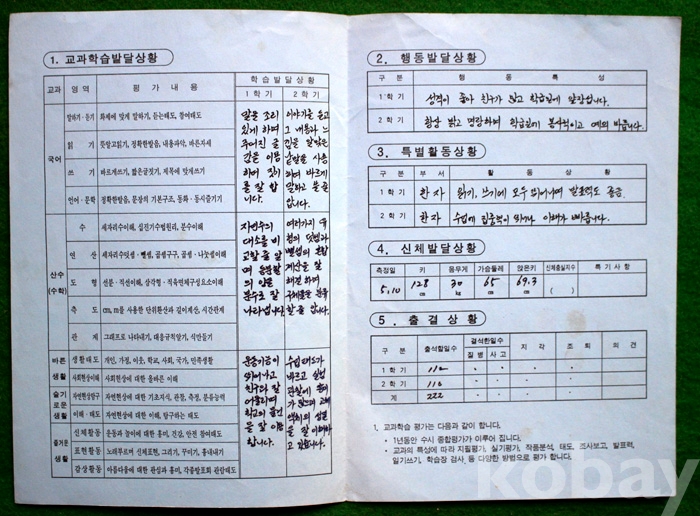 1. 교과학습발달상황
교과 영역 평가내용 학습발달상황
1학기 2학기
국어
말하기·듣기 화제에 맞게 말하기, 듣는태도, 참여태도
읽기 뜻알고읽기, 정확한발음, 내용파악, 바른자세
쓰기 바르게쓰기, 짧은글짓기, 제목에 맞게쓰기
언어·문학 정확한발음, 문장의 기본구조, 동화·동시즐기기
알맞은 소리
있게 하며
주어진 글
감을 이용
하여 짓기
를 잘 합
니다.
이야기를 듣고
그 내용과 느
낌을 알맞은
낱말을 사용
하여 바르게
말하고
습니다.
산수
(수학)
수 세자리수이해, 십진기수법원리, 분수이해
연산 세자리수덧셈·뺄셈, 곱셈구구, 곱셈·나눗셈이해
도형 선분·직선이해, 삼각형·직육면체구성요소이해
측도 cm, m를 사용한 단위환산과 길이재기, 시간관계
관계 그래프로 나타내기, 대응규칙알기, 식만들기
자연수의
대소를 비
교할 줄 알
며 등분할
의 일을
분수로 잘
나타냅니다.
여러가지 유
형의 덧셈과
뺄셈의 혼합
계산을 잘
해결하며
할 줄 압니다.
바른
생활
생활태도 개인, 가정, 이웃, 학교, 사회, 국가, 민족생활
사회현상이해 사회현상에 대한 올바른 이해
슬기
로운
생활
자연현상탐구 자연현상에 대한 기초지식, 관찰, 측정, 분류능력
이해·태도 자연현상에 대한 이해, 탐구하는 태도
즐거운
생활
신체활동 운동과 놀이에 대한 흥미, 건강, 안전 참여태도
표현활동 노래부르며 신체표현, 그리기, 꾸미기, 흉내내기
감상활동 아름다움에 대한 관심과 흥미, 각종발표회 관람태도
운동기능이
뛰어나고
친구와 잘
어울리며
학교의 물건
을 잘 이용
합니다.
수업태도가
바르고 실험
관찰에 흥미
가 많으며
을 잘 이해하
고 있습니다.
2. 행동발달상황
구분 행동특성
1학기 성격이 좋아 친구가 많고 학습일에 열심입니다.
2학기 항상 밝고 명랑하며 학급일에 봉사적이고 예의 바릅니다.
3. 특별활동상황
구분 부서 활동상황
1학기 한자 읽기, 쓰기에 모두 뛰어나며 발표력도 좋음.
2학기 한자 수업에 집중력이 뛰어나 이해가 빠릅니다.
4. 신체발달상황
측정일 키 몸무게 가슴둘레 앉은키 신체충실지수 특기사항
5.10 128 cm 30 kg 65 cm 69.3 cm ( )
5. 출결상황
구분 출석할일수 결석한일수 지각 조퇴 의견
질병 사고
1학기 112 · · · ·
2학기 110 · · · ·
계 222 · · · ·
1. 교과학습 평가는 다음과 같이 합니다.
• 1년동안 수시 종합평가가 이루어 집니다.
• 교과의 특성에 따라 지필평가, 실기평가, 작품분석, 태도, 조사보고, 발표력,
일기쓰기, 학습장 검사, 등 다양한 방법으로 평가 합니다.
kobay